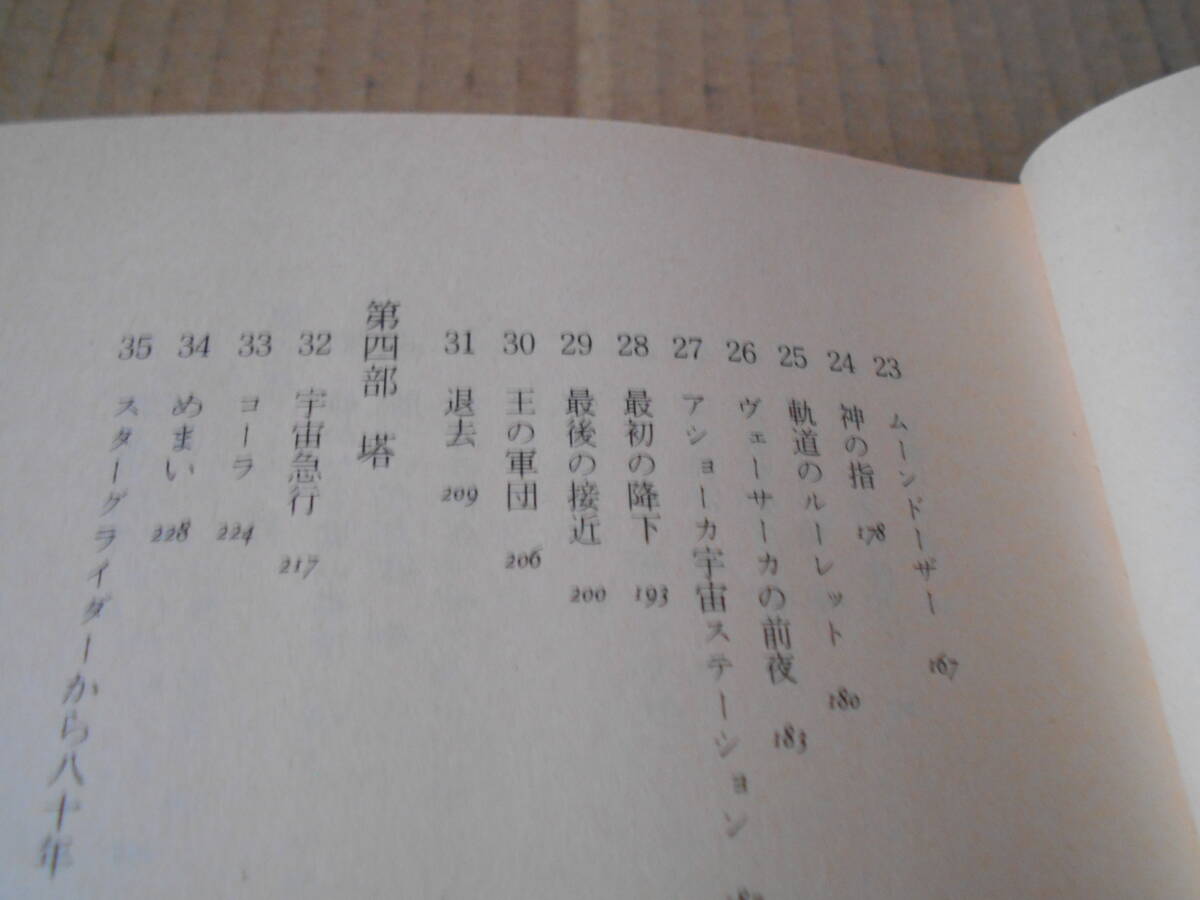 23 ムーンドーザー 167
24 神の指 178
25 軌道のルーレット 180
26 ヴェーサーカの前夜 183
27 アショーカ宇宙ステーション
28 最初の降下 193
29 最後の接近 200
30 王の軍団 206
31 退去 209
第四部 塔
32 宇宙急行 217
33 コーラ 224
34 めまい 228
35 スターグライダーから八十年